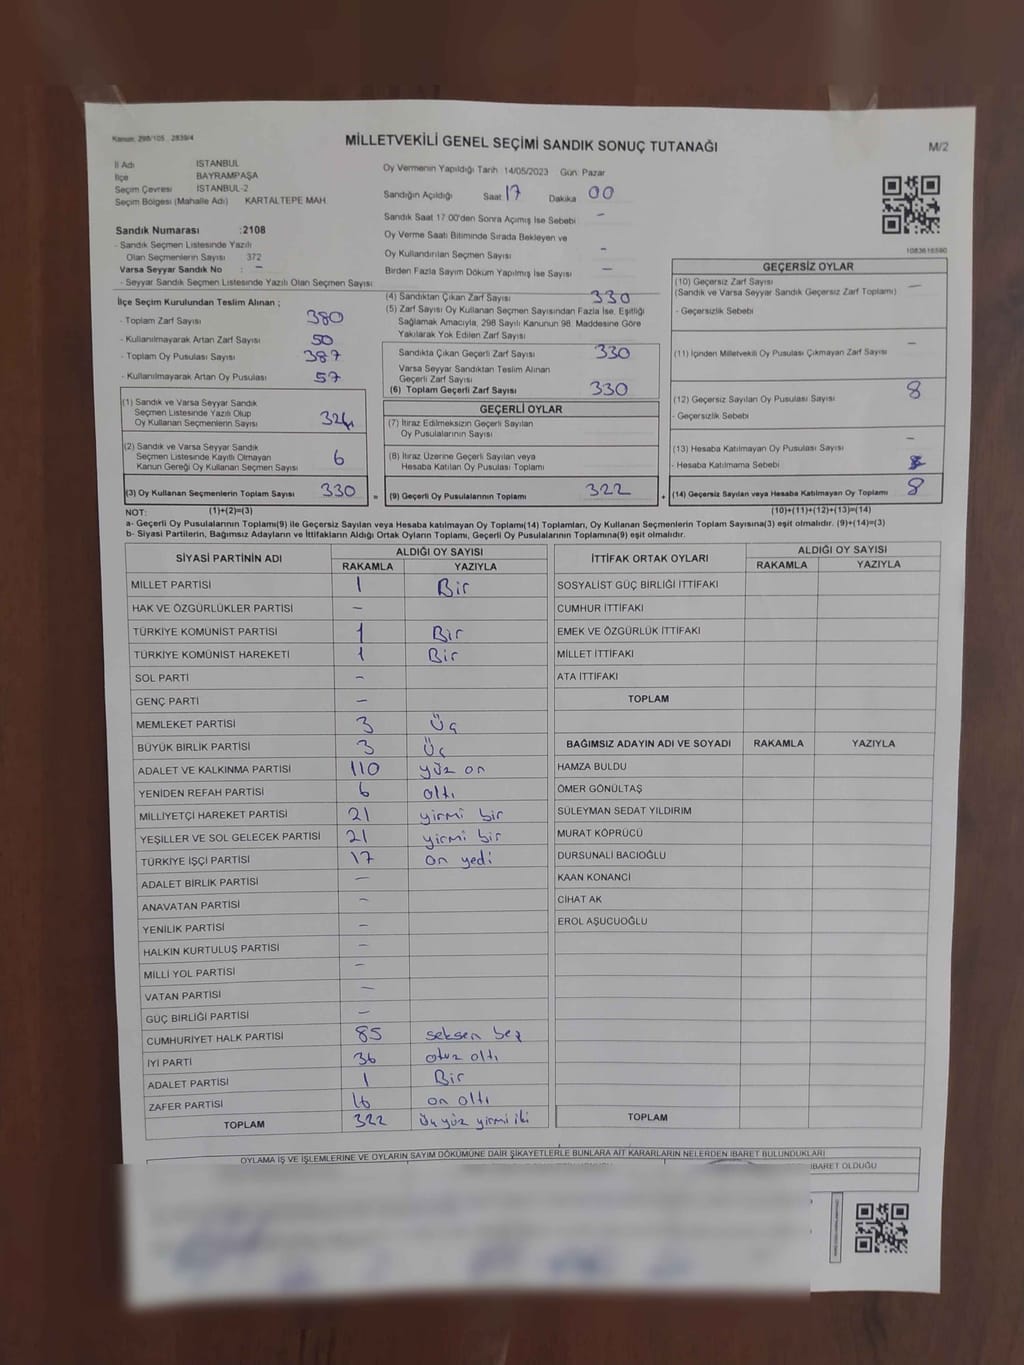 Kanun: 298/105 , 2839/4
MİLLETVEKİLİ GENEL SEÇİMİ SANDIK SONUÇ TUTANAĞI
M/2
İl Adı İSTANBUL
İlçe BAYRAMPAŞA
Seçim Çevresi İSTANBUL-2
Seçim Bölgesi (Mahalle Adı) KARTALTEPE MAH.
Oy Vermenin Yapıldığı Tarih 14/05/2023 Gün: Pazar
Sandığın Açıldığı Saat 17 Dakika 00
Sandık Saat 17:00'den Sonra Açımış İse Sebebi -
Oy Verme Saati Bitiminde Sırada Bekleyen ve
Oy Kullandırılan Seçmen Sayısı -
Birden Fazla Sayım Döküm Yapılmış İse Sayısı -
Sandık Numarası :2108
- Sandık Seçmen Listesinde Yazılı
Olan Seçmenlerin Sayısı 372
Varsa Seyyar Sandık No : -
- Seyyar Sandık Seçmen Listesinde Yazılı Olan Seçmen Sayısı:
İlçe Seçim Kurulundan Teslim Alınan ;
- Toplam Zarf Sayısı 380
- Kullanılmayarak Artan Zarf Sayısı 50
- Toplam Oy Pusulası Sayısı 387
- Kullanılmayarak Artan Oy Pusulası 57
(1) Sandık ve Varsa Seyyar Sandık
Seçmen Listesinde Yazılı Olup
Oy Kullanan Seçmenlerin Sayısı 324
(2) Sandık ve Varsa Seyyar Sandık
Seçmen Listesinde Kayıtlı Olmayan
Kanun Gereği Oy Kullanan Seçmen Sayısı 6
(3) Oy Kullanan Seçmenlerin Toplam Sayısı 330
(4) Sandıktan Çıkan Zarf Sayısı 330
(5) Zarf Sayısı Oy Kullanan Seçmen Sayısından Fazla İse, Eşitliği
Sağlamak Amacıyla, 298 Sayılı Kanunun 98. Maddesine Göre
Yakılarak Yok Edilen Zarf Sayısı
Sandıkta Çıkan Geçerli Zarf Sayısı 330
Varsa Seyyar Sandıktan Teslim Alınan
Geçerli Zarf Sayısı
(6) Toplam Geçerli Zarf Sayısı 330
GEÇERLİ OYLAR
(7) İtiraz Edilmeksizin Geçerli Sayılan
Oy Pusulalarının Sayısı
(8) İtiraz Üzerine Geçerli Sayılan veya
Hesaba Katılan Oy Pusulası Toplamı
= (9) Geçerli Oy Pusulalarının Toplamı 322 +
GEÇERSİZ OYLAR
(10) Geçersiz Zarf Sayısı
(Sandık ve Varsa Seyyar Sandık Geçersiz Zarf Toplamı) -
- Geçersizlik Sebebi
(11) İçinden Milletvekili Oy Pusulası Çıkmayan Zarf Sayısı -
(12) Geçersiz Sayılan Oy Pusulası Sayısı 8
- Geçersizlik Sebebi
(13) Hesaba Katılmayan Oy Pusulası Sayısı -
- Hesaba Katılmama Sebebi
(14) Geçersiz Sayılan veya Hesaba Katılmayan Oy Toplamı 8
NOT: (1)+(2)=(3) (10)+(11)+(12)+(13)=(14)
a- Geçerli Oy Pusulalarının Toplamı(9) ile Geçersiz Sayılan veya Hesaba katılmayan Oy Toplamı(14) Toplamları, Oy Kullanan Seçmenlerin Toplam Sayısına(3) eşit olmalıdır. (9)+(14)=(3)
b- Siyasi Partilerin, Bağımsız Adayların ve İttifakların Aldığı Ortak Oyların Toplamı, Geçerli Oy Pusulalarının Toplamına(9) eşit olmalıdır.
SİYASİ PARTİNİN ADI ALDIĞI OY SAYISI
RAKAMLA YAZIYLA
MİLLET PARTİSİ 1 Bir
HAK VE ÖZGÜRLÜKLER PARTİSİ -
TÜRKİYE KOMÜNİST PARTİSİ 1 Bir
TÜRKİYE KOMÜNİST HAREKETİ 1 Bir
SOL PARTİ -
GENÇ PARTİ -
MEMLEKET PARTİSİ 3 Üç
BÜYÜK BİRLİK PARTİSİ 3 Üç
ADALET VE KALKINMA PARTİSİ 110 yüz on
YENİDEN REFAH PARTİSİ 6 altı
MİLLİYETÇİ HAREKET PARTİSİ 21 yirmi bir
YEŞİLLER VE SOL GELECEK PARTİSİ 21 yirmi bir
TÜRKİYE İŞÇİ PARTİSİ 17 on yedi
ADALET BİRLİK PARTİSİ -
ANAVATAN PARTİSİ -
YENİLİK PARTİSİ -
HALKIN KURTULUŞ PARTİSİ -
MİLLİ YOL PARTİSİ -
VATAN PARTİSİ -
GÜÇ BİRLİĞİ PARTİSİ -
CUMHURİYET HALK PARTİSİ 85 seksen beş
İYİ PARTİ 36 otuz altı
ADALET PARTİSİ 1 Bir
ZAFER PARTİSİ 16 on altı
TOPLAM 322 üç yüz yirmi iki
İTTİFAK ORTAK OYLARI ALDIĞI OY SAYISI
RAKAMLA YAZIYLA
SOSYALİST GÜÇ BİRLİĞİ İTTİFAKI
CUMHUR İTTİFAKI
EMEK VE ÖZGÜRLÜK İTTİFAKI
MİLLET İTTİFAKI
ATA İTTİFAKI
TOPLAM
BAĞIMSIZ ADAYIN ADI VE SOYADI RAKAMLA YAZIYLA
HAMZA BULDU
ÖMER GÖNÜLTAŞ
SÜLEYMAN SEDAT YILDIRIM
MURAT KÖPRÜCÜ
DURSUNALİ BACIOĞLU
KAAN KONANCİ
CİHAT AK
EROL AŞUCUOĞLU
TOPLAM
OYLAMA İŞ VE İŞLEMLERİNE VE OYLARIN SAYIM DÖKÜMÜNE DAİR ŞİKAYETLERLE BUNLARA AİT KARARLARIN NELERDEN İBARET BULUNDUKLARI
İBARET OLDUĞU